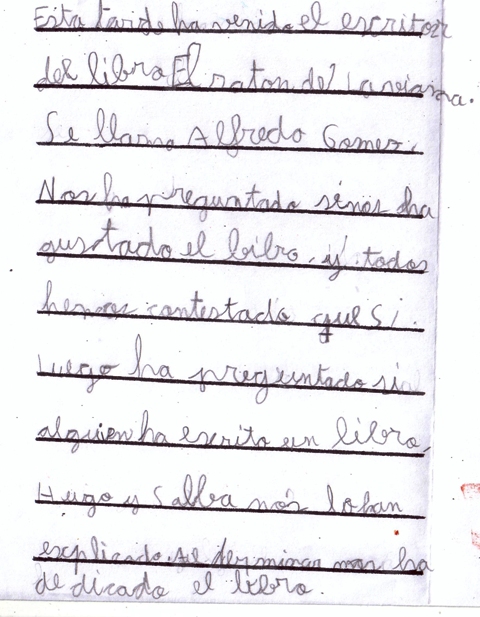 Esta tarde ha venido el escritor
del libro El raton de
Se llama Alfredo Gomez.
Nos ha preguntado si nos ha
gustado el libro. y todos
hemos contestado que Si.
Luego ha preguntado si
alguien ha escrito un libro.
Hugo y nos lo han
explicado. Al derminar nos ha
dedicado el libro.